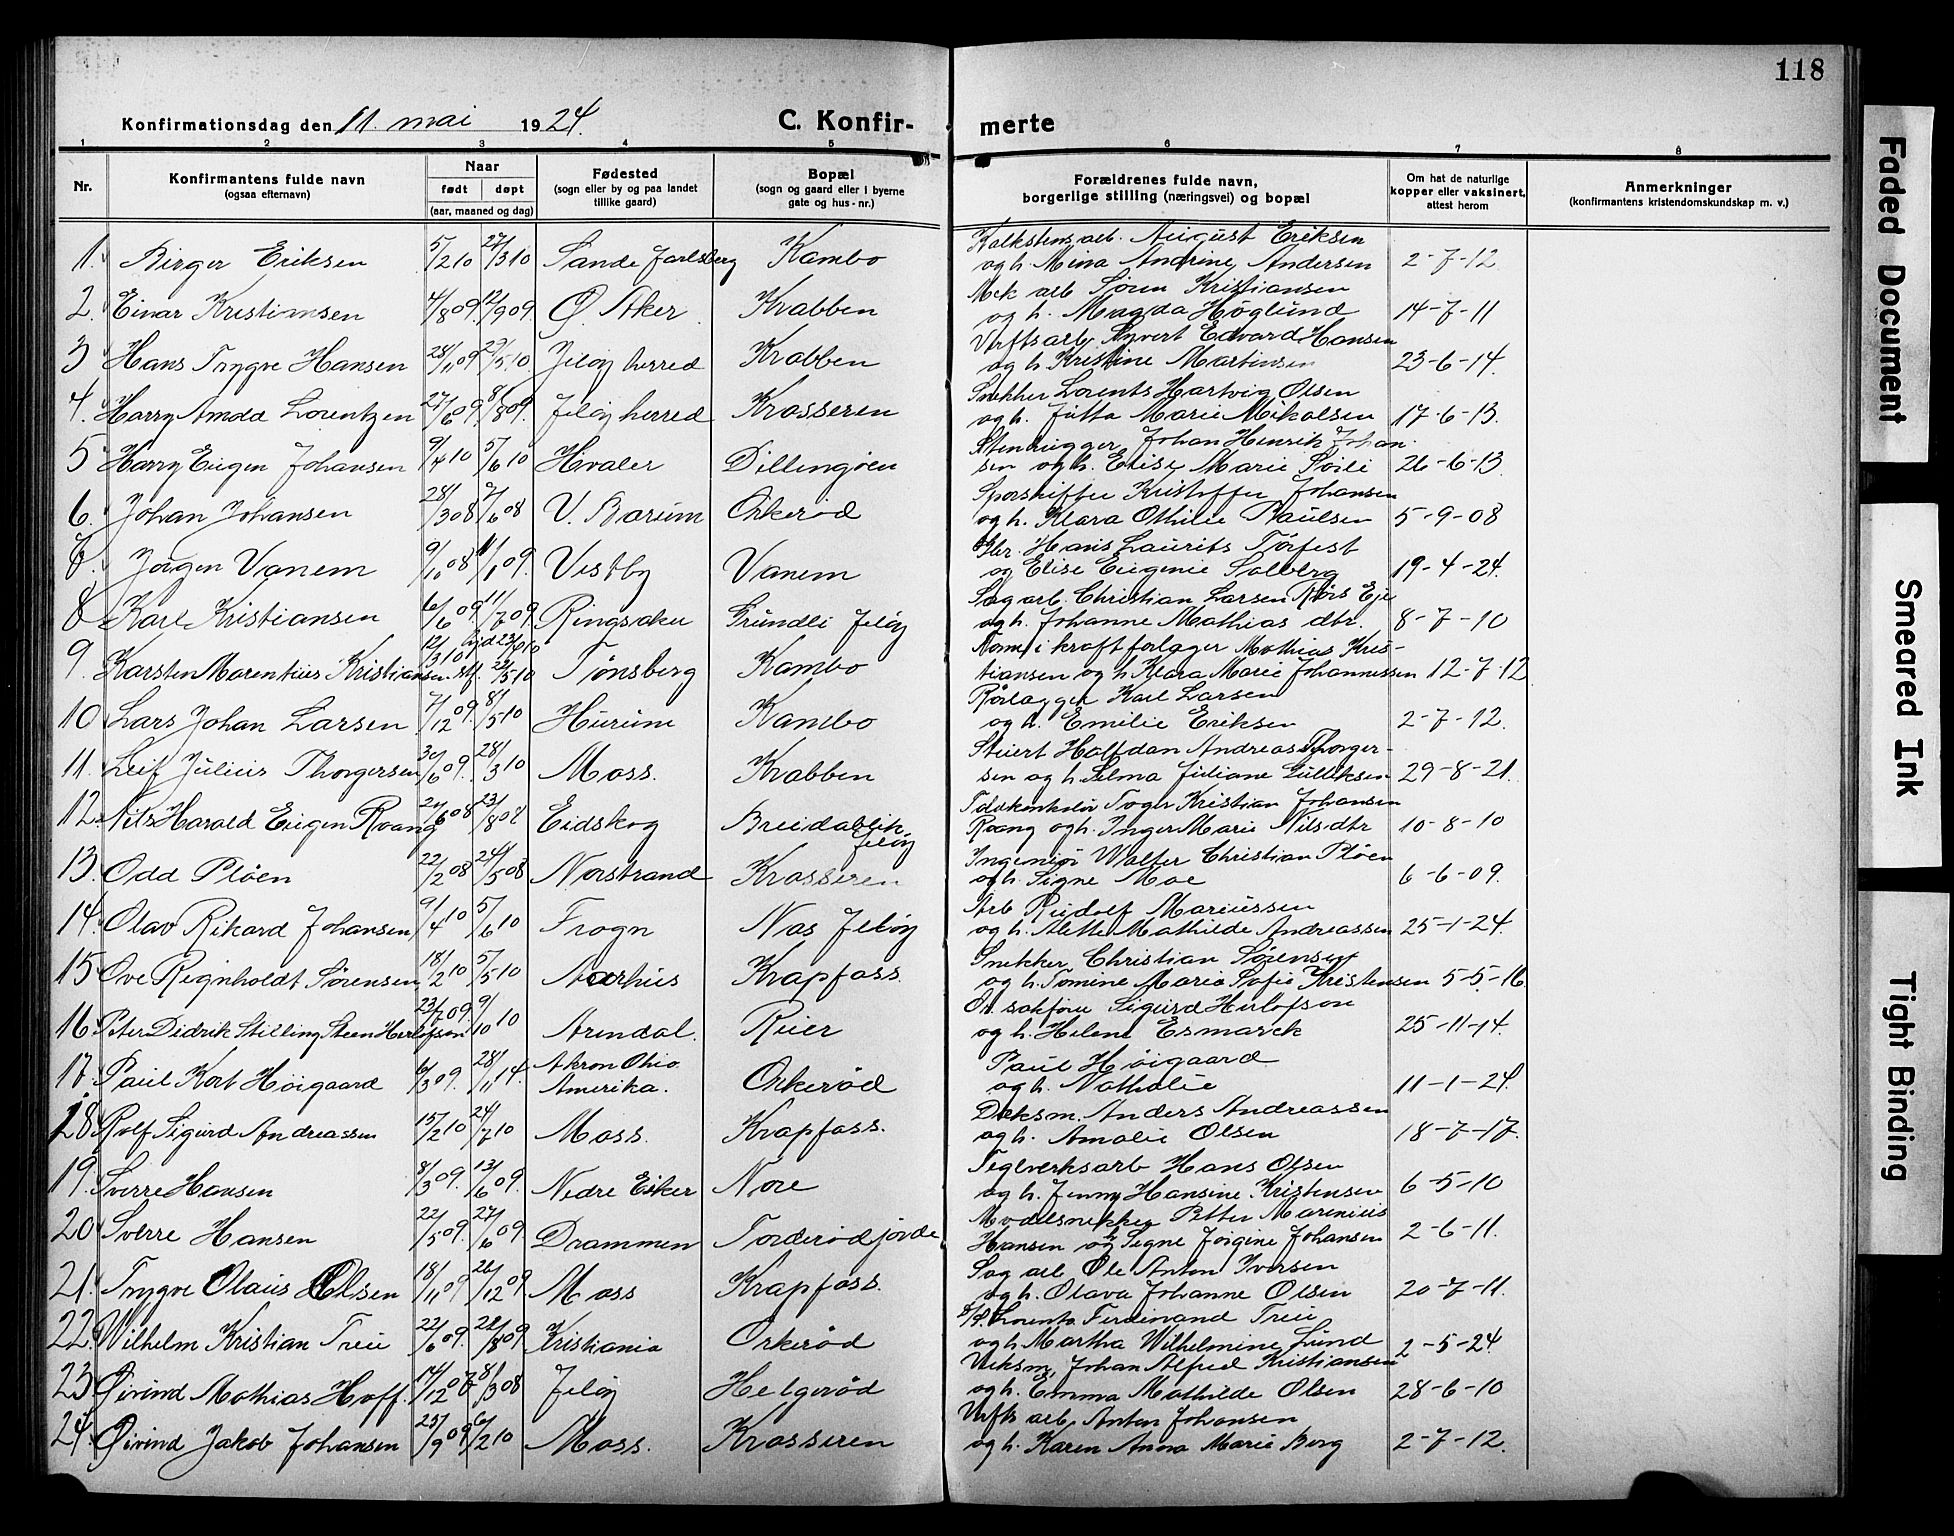 118
Konfirmationsdag den 11. mai 1924. C. Konfirmerte
1 2 3 4 5 6 7 8
Nr.
Konfirmantens fulde navn
(ogsaa efternavn)
Naar
født døpt
(aar, maaned og dag)
Fødested
(sogn eller by og paa landet
tillike gaard)
Bopæl
(sogn og gaard eller i byerne
gate og hus-nr.)
Forældrenes fulde navn,
borgerlige stilling (næringsvei) og bopæl
Om hat de naturlige
kopper eller vaksinert,
attest herom
Anmerkninger
(konfirmantens kristendomskundskap m. v.)
1. Birger Eriksen 5/2 10 27/3 10 Sande Jarlsberg Kambo Kalkstensarb. August Eriksen
og h. Mina Andrine Andersen 2-7-12
2. Einar Kristiansen 4/8 09. 12/9 09. Ø. Aker Krabben Mek arb Søren Kristiansen
og h. Magda Höglund 14-7-11
3 Hans Trygve Hansen 28/11 09. 29/5 10 Jeløy herred Krabben Verftsarb. Syvert Edvard Hansen
og h Kristine Martinsen 23-6-14.
4. Harry Amdd Lorentzen 27/6 09. 8/8 09. Jeløy herred Krosseren Snekker Lorents Hartvig Olsen
og h. Jutta Marie Mikalsen 17-6-13.
5 Harry Eugen Johansen 9/4 10 5/6 10 Hvaler Dillingøen Stenhugger Johan Henrik Johan-
sen og h. Elise Marie Soili 26-6-13
6. Johan Johansen 28/3 08 7/6 08 V. Bærum Orkerød Sporskifter Kristoffer Johansen
og h. Klara Othilie Paulsen 5-9-08
7. Jørgen Vanem 9/10 08 11/1 09. Vestby Vanem Gbr. Hans Laurits Tørfest
og Elise Eugenie Solberg 19-4-24.
8 Karl Kristiansen 6/6 09 11/7 09. Ringsaker Grundli Jeløy Sag arb. Christian Larsen Røis Eje
og h. Johanne Mathias dtr. 8-7-10
9. Karsten Marentius Kristiansen 12/3 10. 22/5 10 Tønsberg Kambo Mathias Kris-
tiansen og h Klara Marie Johannessen 12-7-12
10 Lars Johan Larsen 7/12 09. 8/5 10 Hurum Kambo Rørlægger Karl Larsen
og h. Emilie Eriksen 2-7-12.
11. Leif Julius Thorgersen 30/6 09. 28/3 10 Moss. Krabben Stuert Halfdan Andreas Thorger-
sen og h. Selma Juliane Gulliksen 29-8-21.
12. Nils Harald Eugen Roang 24/6 08 23/8 08 Eidskog Breidablik
Jeløy Toldkontrolør Toger Kristian Johansen
Roang og h. Inger Marie Nilsdtr 10-8-10
13. Odd Pløen 22/2 08 24/5 08 Norstrand Krosseren Ingeniør Walter Christian Pløen
og h. Signe Moe 6-6-09.
14. Olav Rikard Johansen 9/4 10 5/6 10 Frogn Nas Jeløy Arb Rudolf Mariussen
og h. Alette Mathilde Andreassen 25-1-24.
15 Ove Reignholdt Sørensen 18/2 10 5/5 10 Aarhus Krapfoss. Snekker Christian Sørensen
og h. Tomine Marie Sofie Kristensen 5-5-16
16. Peter Didrik Stilling Steen Herlofson 23/7 09. 9/10 10 Arendal. Reier O.r.sakfører Sigurd Herlofson
og h. Helene Esmarck 25-11-14.
17. Paul Kort Høigaard 6/3 09. 28/11 14. Akron Ohio
Amerika. Orkerød Paul Høigaard
og h. Nathalie 11-1-24.
18. Rolf Sigurd Andreassen 15/2 10 24/7 10 Moss. Krapfoss. Dreksm. Anders Andreassen
og h. Amalie Olsen 18-7-17.
19. Sverre Hansen 8/3 09. 13/6 09. Nedre Eiker Nore Teglverksarb Hans Olsen
og h. Jenny Hansine Kristensen 6-5-10
20. Sverre Hansen 22/5 09. 27/6 09. Drammen Torderødjorde Modelsnekker Petter Marenius
Hansen og h Signe Jørgine Johansen 2-6-11.
21. Trygve Olaus Olsen 18/11 09 26/12 09. Moss Krapfoss. Sag arb Ole Anton Iversen
og h. Olava Johanne Olsen 20-7-11.
22. Wilhelm Kristian Treu 22/6 09. 22/8 09. Kristiania Orkerød Lorents Ferdinand Treu
og h. Martha Wilhelmine Lund 2-5-24
23 Øivind Mathias Hoff. 14/12 07 8/3 08 Jeløy Helgerød Verksm. Johan Alfred Kristiansen
og h. Emma Mathilde Olsen 28-6-10
24. Øivind Jakob Johansen 25/9 09. 6/2 10 Moss. Krosseren Verfts arb. Anton Johansen
og h. Karen Anna Marie Berg 2-7-12.
Faded Document
Smeared Ink
Tight Binding